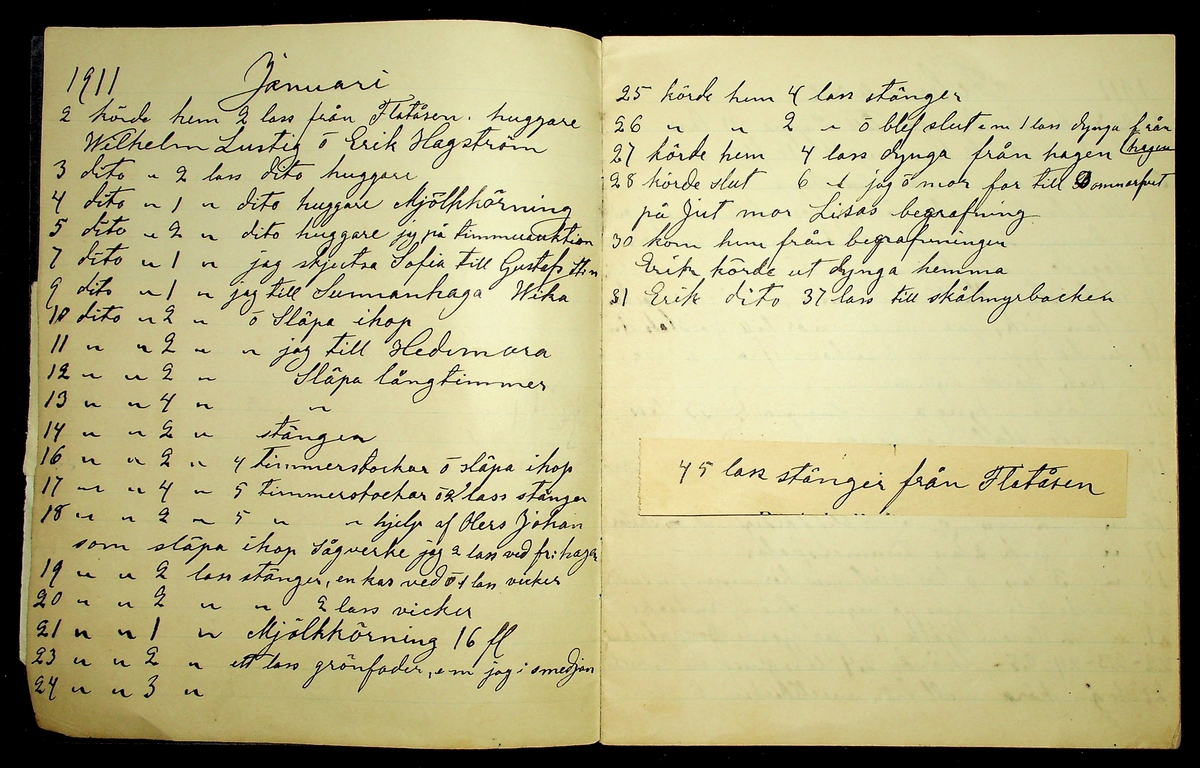 1911 Januari
2 körde hem 2 lass från Flatåsen. huggare
Wilhelm Lustig ö Erik Hagström
3 dito " 2 lass dito huggare
4 dito " 1 " dito huggare Mjölkkörning
5 dito " 2 " dito huggare jag på timmerauktion
7 dito " 1 " jag skjutsa Sofia till Gustafs Stn
9 dito " 1 " jag till Sunnanhaga Wika
10 dito " 2 " ö Släpa ihop
11 " " 2 " " jag till Hedemora
12 " " 2 " Släpa långtimmer
13 " " 4 " "
14 " " 2 " stänger
16 " " 2 " 4 timmerstockar ö släpa ihop
17 " " 4 " 5 timmerstockar ö 2 lass stänger
18 " " 2 " 5 " " hjelp af Olers Johan
som släpa ihop Sågverke jag 2 lass ved fr: hagen
19 " " 2 lass stänger, en kas ved ö 1 lass vicker
20 " " 2 " " 2 lass vicker
21 " " 1 " Mjölkkörning 16 fl
23 " " 2 " ett lass grönfoder, em jag i smedjan
24 " " 3 "
25 körde hem 4 lass stänger
26 " " 2 " ö blef slut em 1 lass dynga från
hagen
27 körde hem 4 lass dynga från hagen
28 körde slut 6 " jag ö mor for till
på Jut mor Lisas begrafning
30 kom hem från begrafningen
Erik körde ut dynga hemma
31 Erik dito 37 lass till skålmyrbacken
45 lass stänger från Flatåsen